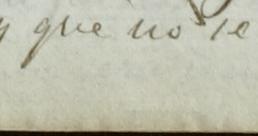 y que no se